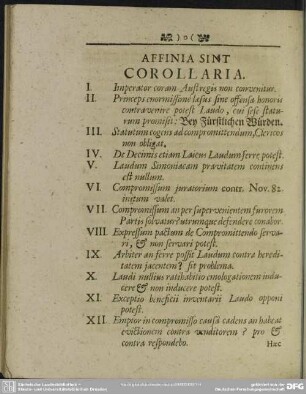 )o(
AFFINIA SINT
COROLLARIA.
I. Imperator coram Austregis non convenitur.
II. Princeps enormissimè læsus sine offensa honoris
contravenire potest Laudo, cui sese statu-
rum promisit: Bey Fürstlichen Würden.
III. Statutum cogens ad compromittendum, Clericos
non obligat.
IV. De Decimis etiam Laicus Laudum ferre potest.
V. Laudum Simoniacam pravitatem continens
est nullum.
VI. Compromissum juratorium contr. Nov. 82.
initum valet.
VII. Compromissum an per supervenientem furorem
Partis solvatur? utrumque defendere conabor.
VIII. Expressum pactum de Compromittendo serva-
ri, & non servari potest.
IX. Arbiter an ferre possit Laudum contra heredi-
tatem jacentem? sit problema.
X. Laudi nullius ratihabitio emologationem indu-
cere & non inducere potest.
XI. Exceptio beneficii inventarii Laudo opponi
potest.
XII. Emptor in compromisso causâ cadens an habeat
evictionem contra venditorem? pro &
contra respondebo.
Hæc